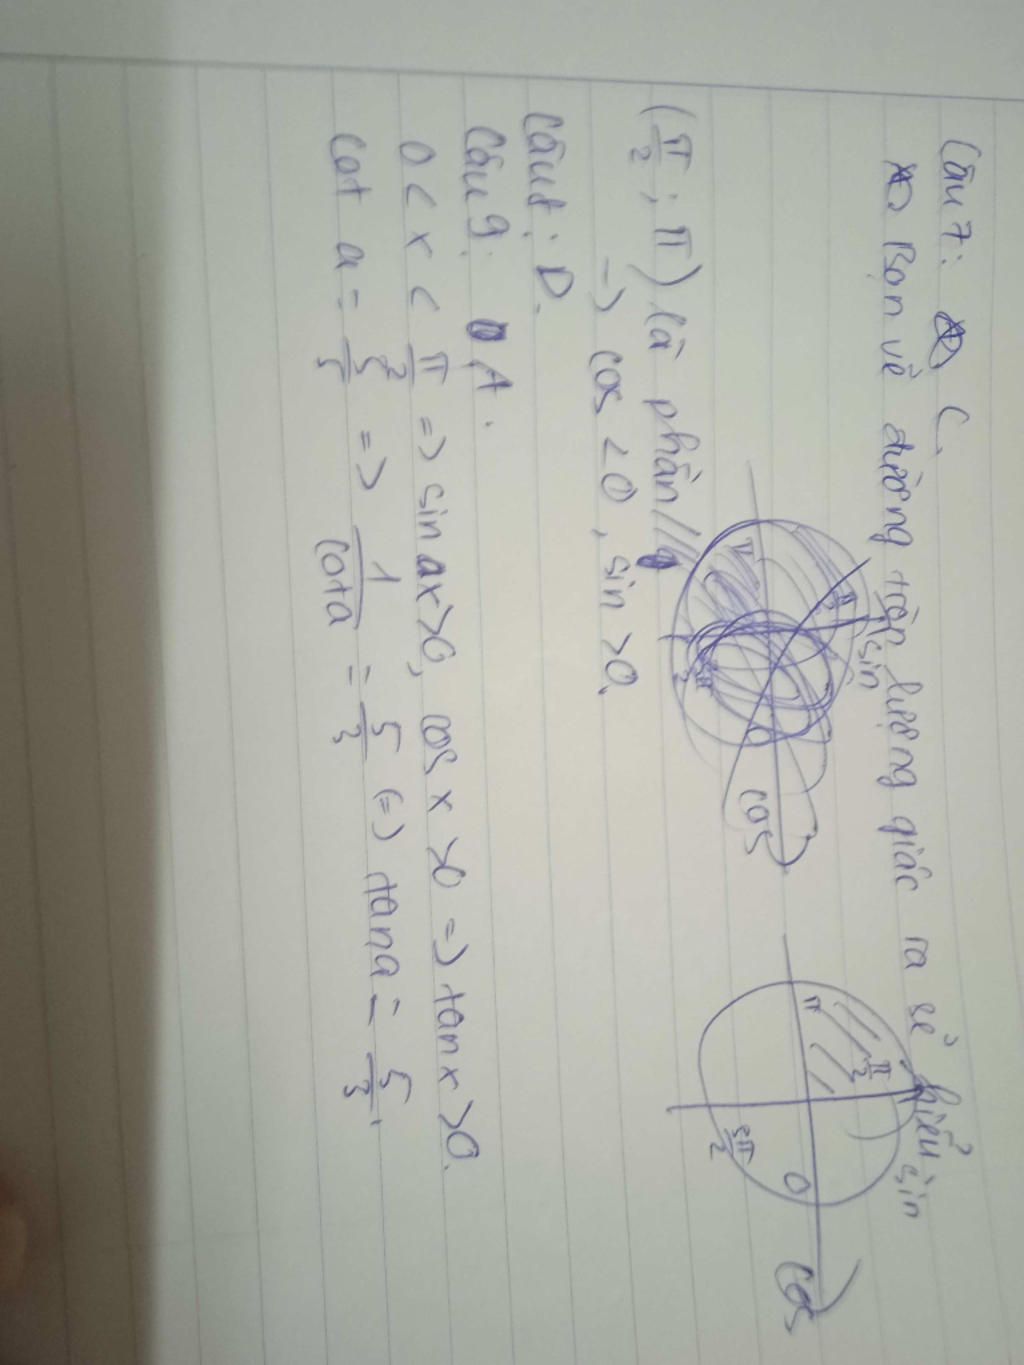 Câu 7: C.
Bạn vẽ đường tròn lượng giác ra sẽ hiểu
sin
π
π/2
3π/2
0
cos
sin
π
π/2
3π/2
0
cos
(π/2; π) là phần //
=> cos < 0, sin > 0.
Câu 8: D.
Câu 9: A.
0 < x < π/2 => sin x > 0, cos x > 0 => tan x > 0.
cot a = => 1/cot a = 5/3 (=) tan a = 5/3.